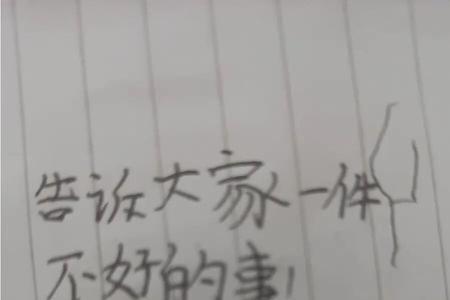 告诉大家一件
不好的事!